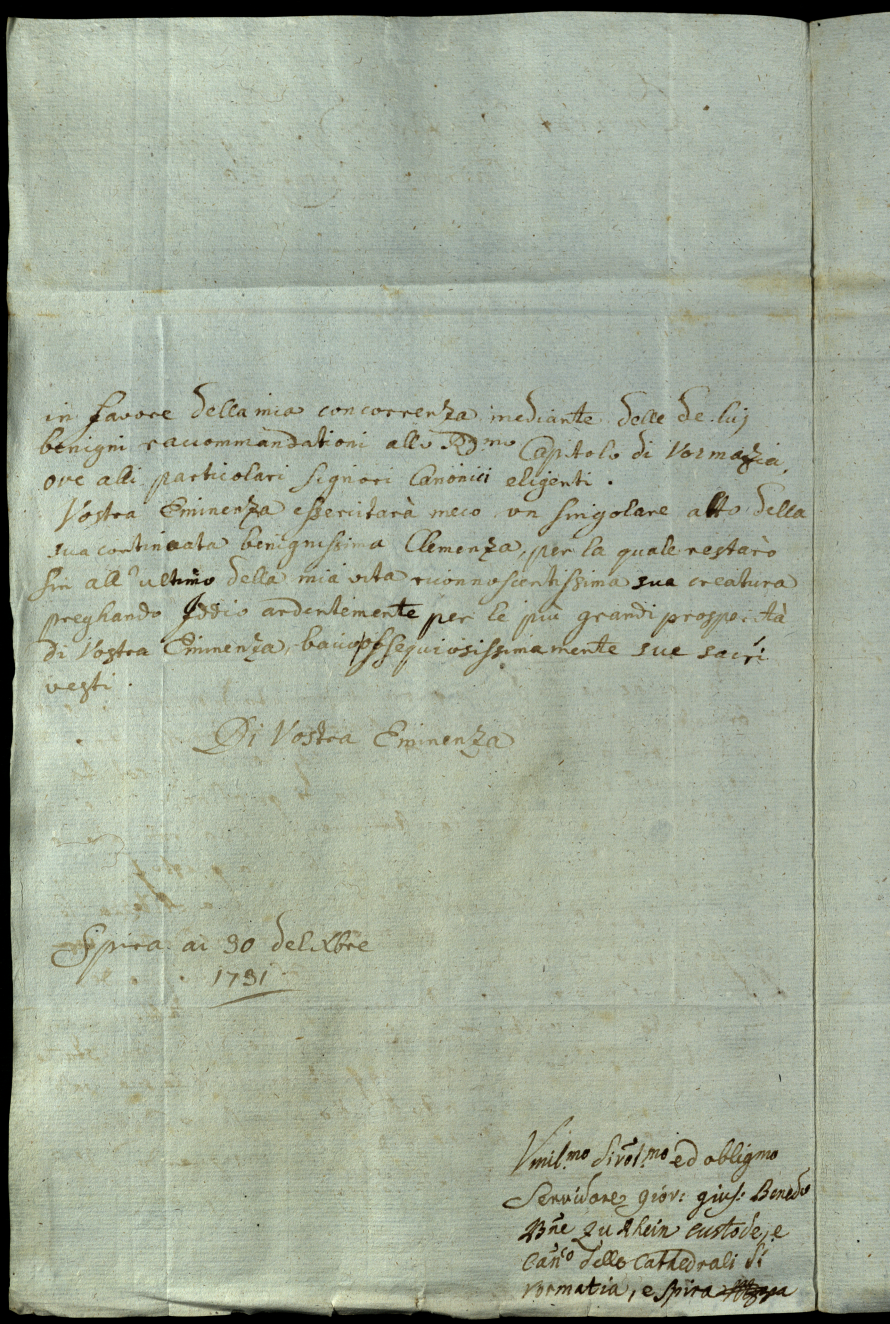 in favore della mia concorrenza mediante delle de luj
benigni raccommandationi allo Rdmo Capitolo di Vormazia,
ove alli particolari signori Canonici eligenti.
Vostra Eminenza essercitarà meco vn singolare atto della
sua continuata benignissima Clemenza, per la quale restarò
sin all'ultimo della mia vita riconnoscentissima sua creatura
preghando Iddio ardentemente per le più grandi prosperità
di Vostra Eminenza, bacio ossequiosissimamente sue sacri
vesti.
Di Vostra Eminenza
Spira ai 30 del Xbre
1731
Vmil.mo divot.mo ed obligmo
Servidore giov: gius: Bened
Bne Zu Rhein custode, e
Can.co delle Cathedrali di
vormatia, e spira